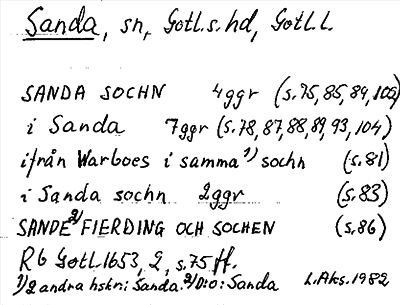 Sanda, sn, Gotl.s.hd, Gotl.l.
SANDA SOCHN 4ggr (s.75,85,89,102)
i Sanda 7ggr (s.78,87,88,89,93,104)
ifrån Warboes i samma 1) sochn (s.81)
i Sanda sochn 2ggr (s.83)
SANDE 2) FIERDING OCH SOCHEN (s.86)
Rb Gotl. 1653, 2, s.75 ff.
1) 2 andra hskr: i Sanda. 2) D:o: Sanda L.Aks. 1982